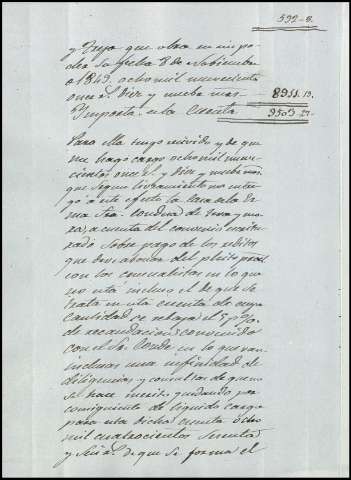 592-8.
y Deza que obra en mi po-
der su fecha 8 de Nobiembre
e 1849, ocho mil nuevecientos
once r.s Diez y nuebe mrs. 8911..19.
Importa esta Cuenta 9503..27.
Para ella tengo recivido y de que
me hago cargo ocho mil nueve
cientos once r.s y Diez y nuebe mrs
que segun livramiento me entre
gó a este efecto la Casa de la
Sra. Condesa de
a cuenta del convenio
sobre pago de los reditos
que del pleito
con los en lo que
no está incluso el de que se
trata en esta cuenta de cuya
cantidad se rebaja el 5 p%
de recaudacion convenido
con el Sr. Conde en lo que van
inclusas una infinidad de
diligencias y consultas de que no
se hace merito, quedando por
consiguiente de liquido cargo
para esta dicha cuenta ocho
mil cuatrocientos sesenta
y seis r.s de que se forma el